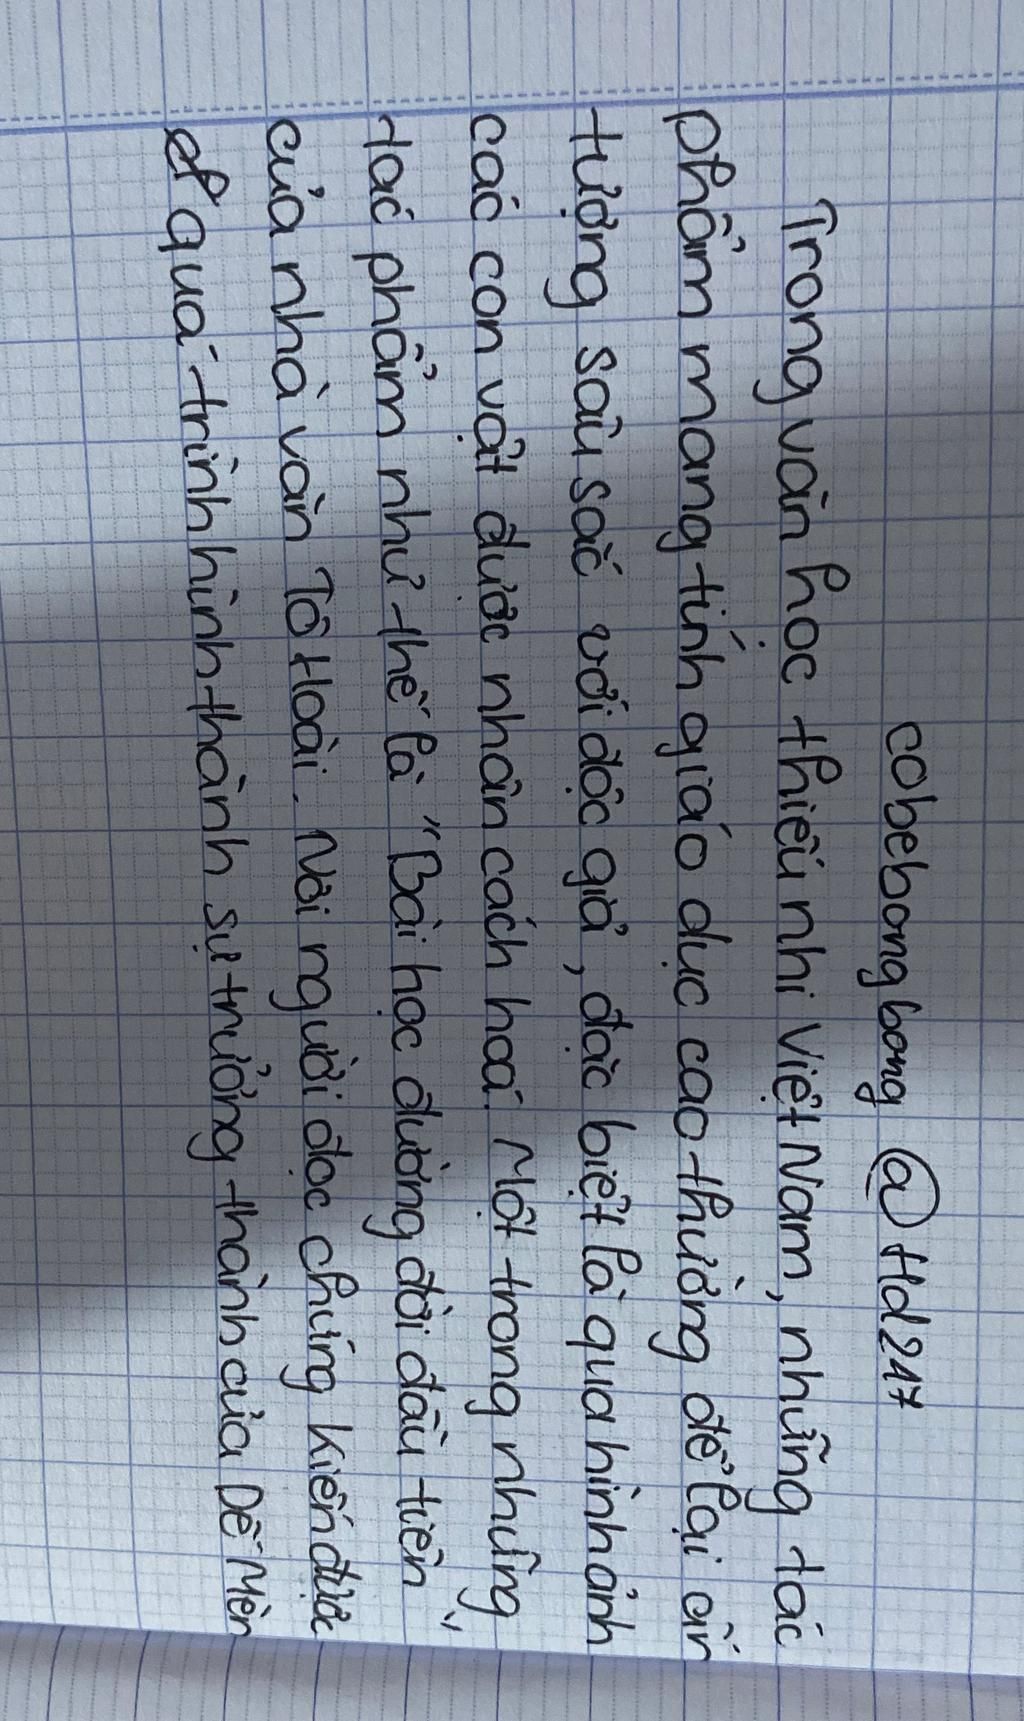 cobebongbong @Hd247
Trong văn học thiếu nhi Việt Nam, những tác
phẩm mang tính giáo dục cao thường để lại ấn
tượng sâu sắc với độc giả, đặc biệt là qua hình ảnh
các con vật được nhân cách hoá. Một trong những
tác phẩm như thế là "Bài học đường đời đầu tiên"
của nhà văn Tô Hoài. Nơi người đọc chứng kiến được
quá trình hình thành sự trưởng thành của Dế Mèn